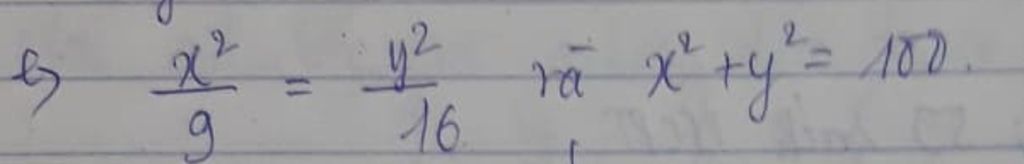 b) x²/9 = y²/16 và x² + y² = 100.